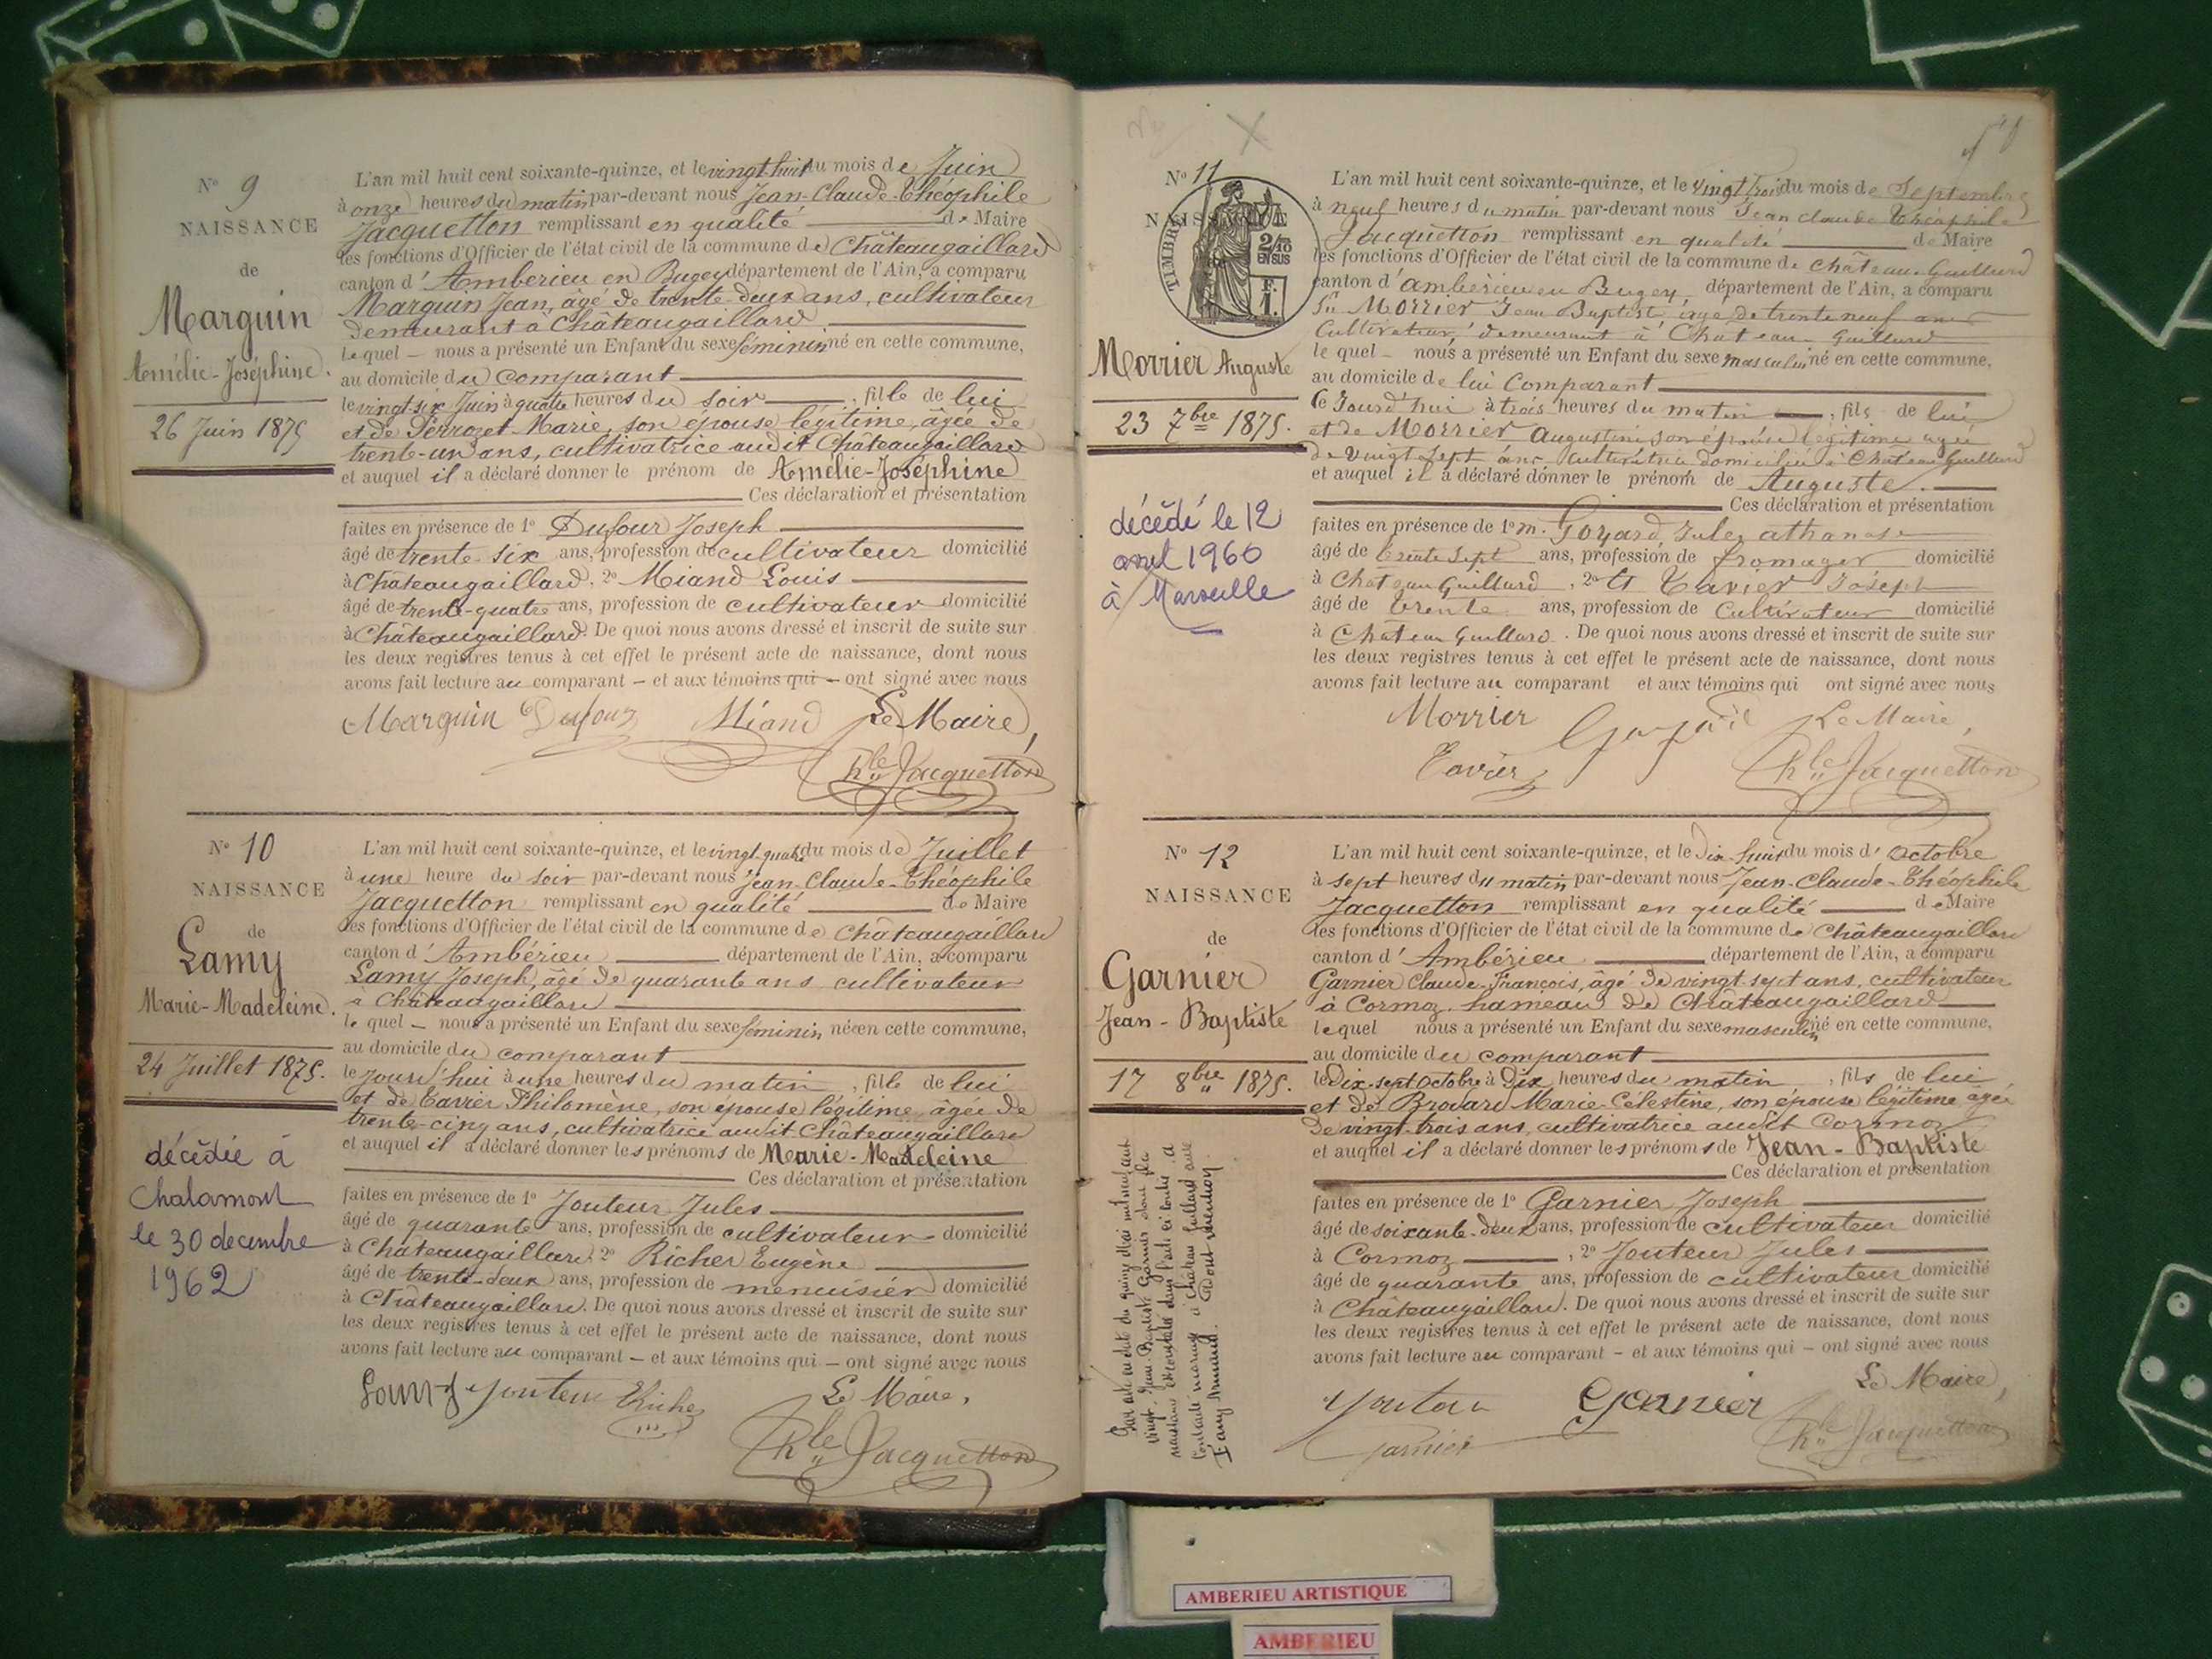 N° 9
NAISSANCE
de
Marguin
Amélie-Joséphine.
26 Juin 1875
L'an mil huit cent soixante-quinze, et le vingt huit du mois de Juin
à onze heures du matin par-devant nous Jean-Claude-Théophile
Jacquetton remplissant en qualité de Maire
les fonctions d'Officier de l'état civil de la commune de Châteaugaillard
canton d'Amberieu en Bugey département de l'Ain, a comparu
Marguin Jean, âgé de trente-deux ans, cultivateur
demeurant à Châteaugaillard
lequel – nous a présenté un Enfant du sexe féminin né en cette commune,
au domicile du comparant
le vingt-six Juin à quatre heures du soir , fille de lui
et de Perrozet Marie, son épouse légitime, âgée de
trente-un ans, cultivatrice audit Châteaugaillard
et auquel il a déclaré donner le prénom de Amélie-Joséphine
Ces déclaration et présentation
faites en présence de 1° Dufour Joseph
âgé de trente-six ans, profession de cultivateur domicilié
à Châteaugaillard. 2° Miand Louis
âgé de trente-quatre ans, profession de cultivateur domicilié
à Châteaugaillard. De quoi nous avons dressé et inscrit de suite sur
les deux registres tenus à cet effet le présent acte de naissance, dont nous
avons fait lecture au comparant – et aux témoins qui – ont signé avec nous
Marguin Dufour Miand Le Maire,
Jacquetton
N° 10
NAISSANCE
de
Lamy
Marie-Madeleine.
24 Juillet 1875.
décédée à
Chalamont
le 30 decembre
1962
L'an mil huit cent soixante-quinze, et le vingt-quatre du mois de Juillet
à une heure du soir par-devant nous Jean-Claude-Théophile
Jacquetton remplissant en qualité de Maire
les fonctions d'Officier de l'état civil de la commune de Châteaugaillard
canton d'Ambérieu département de l'Ain, a comparu
Lamy Joseph, âgé de quarante ans cultivateur
à Châteaugaillard
lequel – nous a présenté un Enfant du sexe féminin né en cette commune,
au domicile du comparant
le jourd'hui à une heures du matin , fille de lui
et de Tavier Philomène, son épouse légitime, âgée de
trente-cinq ans, cultivatrice audit Châteaugaillard
et auquel il a déclaré donner les prénoms de Marie-Madeleine
Ces déclaration et présentation
faites en présence de 1° Jouteur Jules
âgé de quarante ans, profession de cultivateur domicilié
à Châteaugaillard. 2° Richer Eugène
âgé de trente-deux ans, profession de menuisier domicilié
à Châteaugaillard. De quoi nous avons dressé et inscrit de suite sur
les deux registres tenus à cet effet le présent acte de naissance, dont nous
avons fait lecture au comparant – et aux témoins qui – ont signé avec nous
Lamy Jouteur Richer Le Maire,
Jacquetton
N° 11
NAISSANCE
TIMBRE
2/10
EN SUS
F.
1.
Morrier Auguste
23 7bre 1875.
décédé le 12
avril 1960
à Marseille
L'an mil huit cent soixante-quinze, et le vingt trois du mois de Septembre
à neuf heures du matin par-devant nous Jean claude Théophile
Jacquetton remplissant en qualité de Maire
les fonctions d'Officier de l'état civil de la commune de Château-Gaillard
canton d'ambérieu en Bugey, département de l'Ain, a comparu
Morrier Jean Baptiste age de trente neuf ans
Cultivateur, demeurant à Chateau Gaillard
lequel – nous a présenté un Enfant du sexe masculin né en cette commune,
au domicile de lui Comparant
Ce Jourd'hui à trois heures du matin , fils de lui
et de Morrier Augustine son épouse légitime agee
de vingt sept ans Cultivatrice domiciliée à Chateau Gaillard
et auquel il a déclaré donner le prénom de Auguste.
Ces déclaration et présentation
faites en présence de 1° m. Goyard, Jules athanase
âgé de trente sept ans, profession de fromager domicilié
à Chateau Gaillard, 2° et Tavier Joseph
âgé de trente ans, profession de Cultivateur domicilié
à Château Gaillard. De quoi nous avons dressé et inscrit de suite sur
les deux registres tenus à cet effet le présent acte de naissance, dont nous
avons fait lecture au comparant et aux témoins qui ont signé avec nous
Morrier Goyard Le Maire,
Tavier Jacquetton
N° 12
NAISSANCE
de
Garnier
Jean-Baptiste
17 8bre 1875.
Par acte en date du quinze Mai mil neuf cent
vingt, Jean-Baptiste Garnier dont la
naissance est constatée dans l'acte ci contre a
contracté mariage à Château Gaillard avec
Armand. Dont mention.
L'an mil huit cent soixante-quinze, et le dix-huit du mois d'Octobre
à sept heures du matin par-devant nous Jean-Claude-Théophile
Jacquetton remplissant en qualité de Maire
les fonctions d'Officier de l'état civil de la commune de Châteaugaillard
canton d'Ambérieu département de l'Ain, a comparu
Garnier Claude-François, âgé de vingt-sept ans, cultivateur
à Cormoz, hameau de Châteaugaillard
lequel nous a présenté un Enfant du sexe masculin né en cette commune,
au domicile du comparant
le Dix-sept Octobre à Dix heures du matin , fils de lui
et de Brodard Marie-Célestine, son épouse légitime âgée
de vingt-trois ans, cultivatrice audit Cormoz
et auquel il a déclaré donner les prénoms de Jean-Baptiste
Ces déclaration et présentation
faites en présence de 1° Garnier Joseph
âgé de soixante-deux ans, profession de cultivateur domicilié
à Cormoz , 2° Jouteur Jules
âgé de quarante ans, profession de cultivateur domicilié
à Châteaugaillard. De quoi nous avons dressé et inscrit de suite sur
les deux registres tenus à cet effet le présent acte de naissance, dont nous
avons fait lecture au comparant – et aux témoins qui – ont signé avec nous
Jouteur Garnier Le Maire,
Garnier Jacquetton
AMBERIEU ARTISTIQUE
AMBERIEU